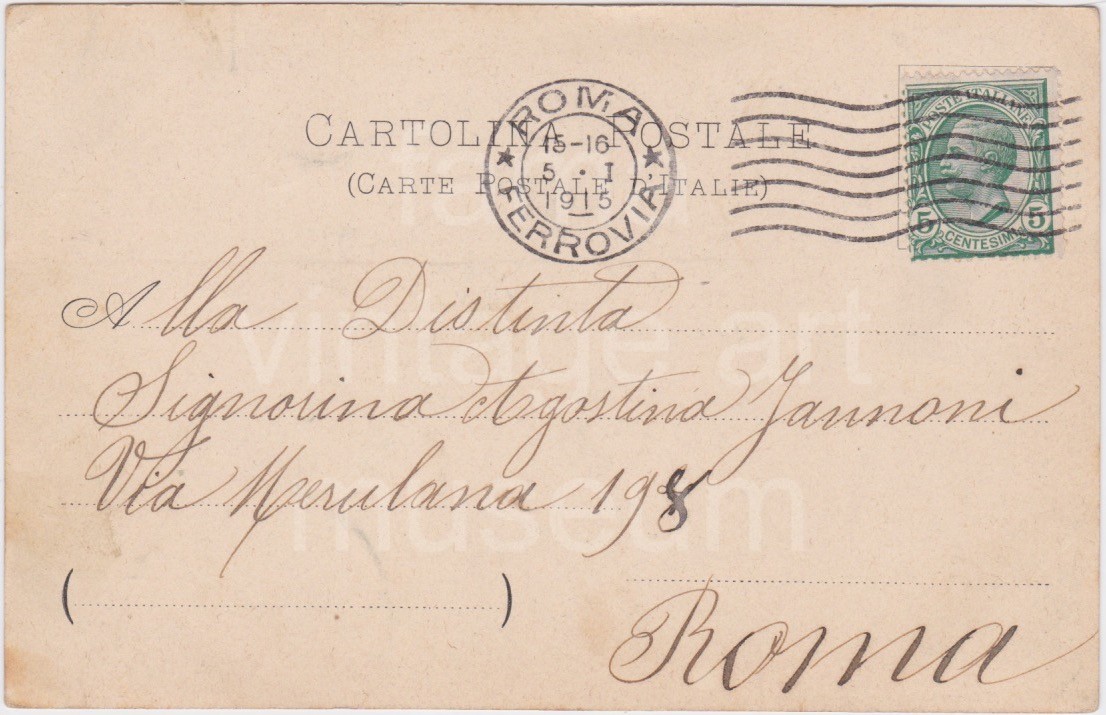 CARTOLINA POSTALE
(CARTE POSTALE D'ITALIE)
ROMA
15-16
5 · I
1915
FERROVIA
POSTE ITALIANE
5 CENTESIMI 5
Alla Distinta
Signorina Agostina Jannoni
Via Merulana 198
Roma
vintage art
museum